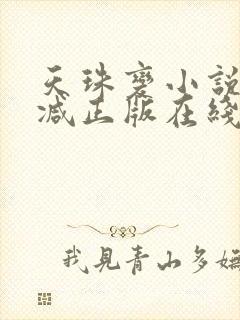 天珠变小說
减正版在綫
我見青山多嫵